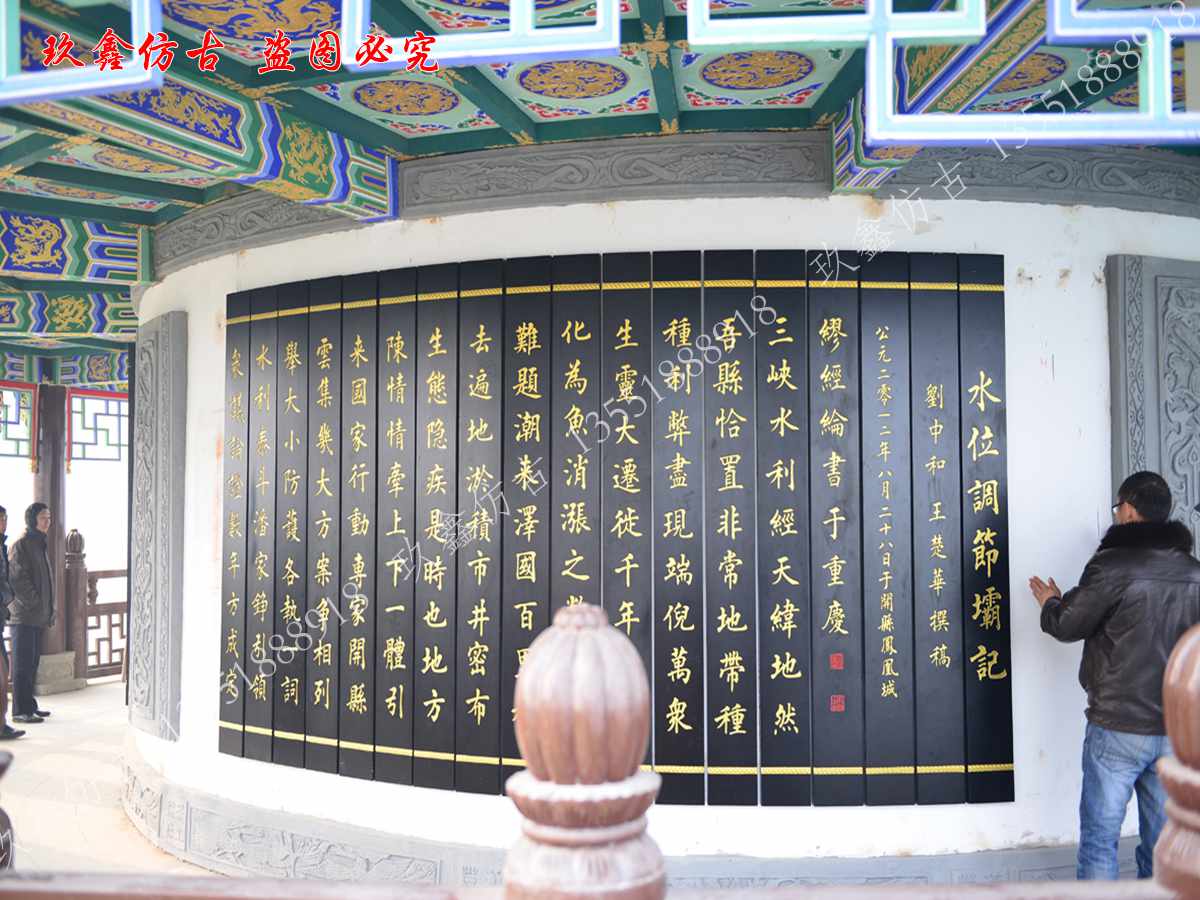 玖鑫仿古 盗图必究
水位調節壩記
劉中和 王楚華 撰稿
公元二零一二年八月二十八日于開縣鳳凰城
繆經綸書于重慶
三峽水利經天緯地然
吾縣恰置非常地帶種
種利弊盡現端倪萬衆
生靈大遷徙千年
化為魚消漲之
難題潮裝澤國百
去遍地淤積市井密布
生態隐疾是時也地方
陳情情牽上下一體引
来國家行動專家開縣
雲集幾大方案争相列
舉大小防護各執一詞
水利泰斗潘家錚引領
衆議論證數年方成定
玖鑫仿古 13551888918
玖鑫仿古 13551888918
玖鑫仿古 13551888918